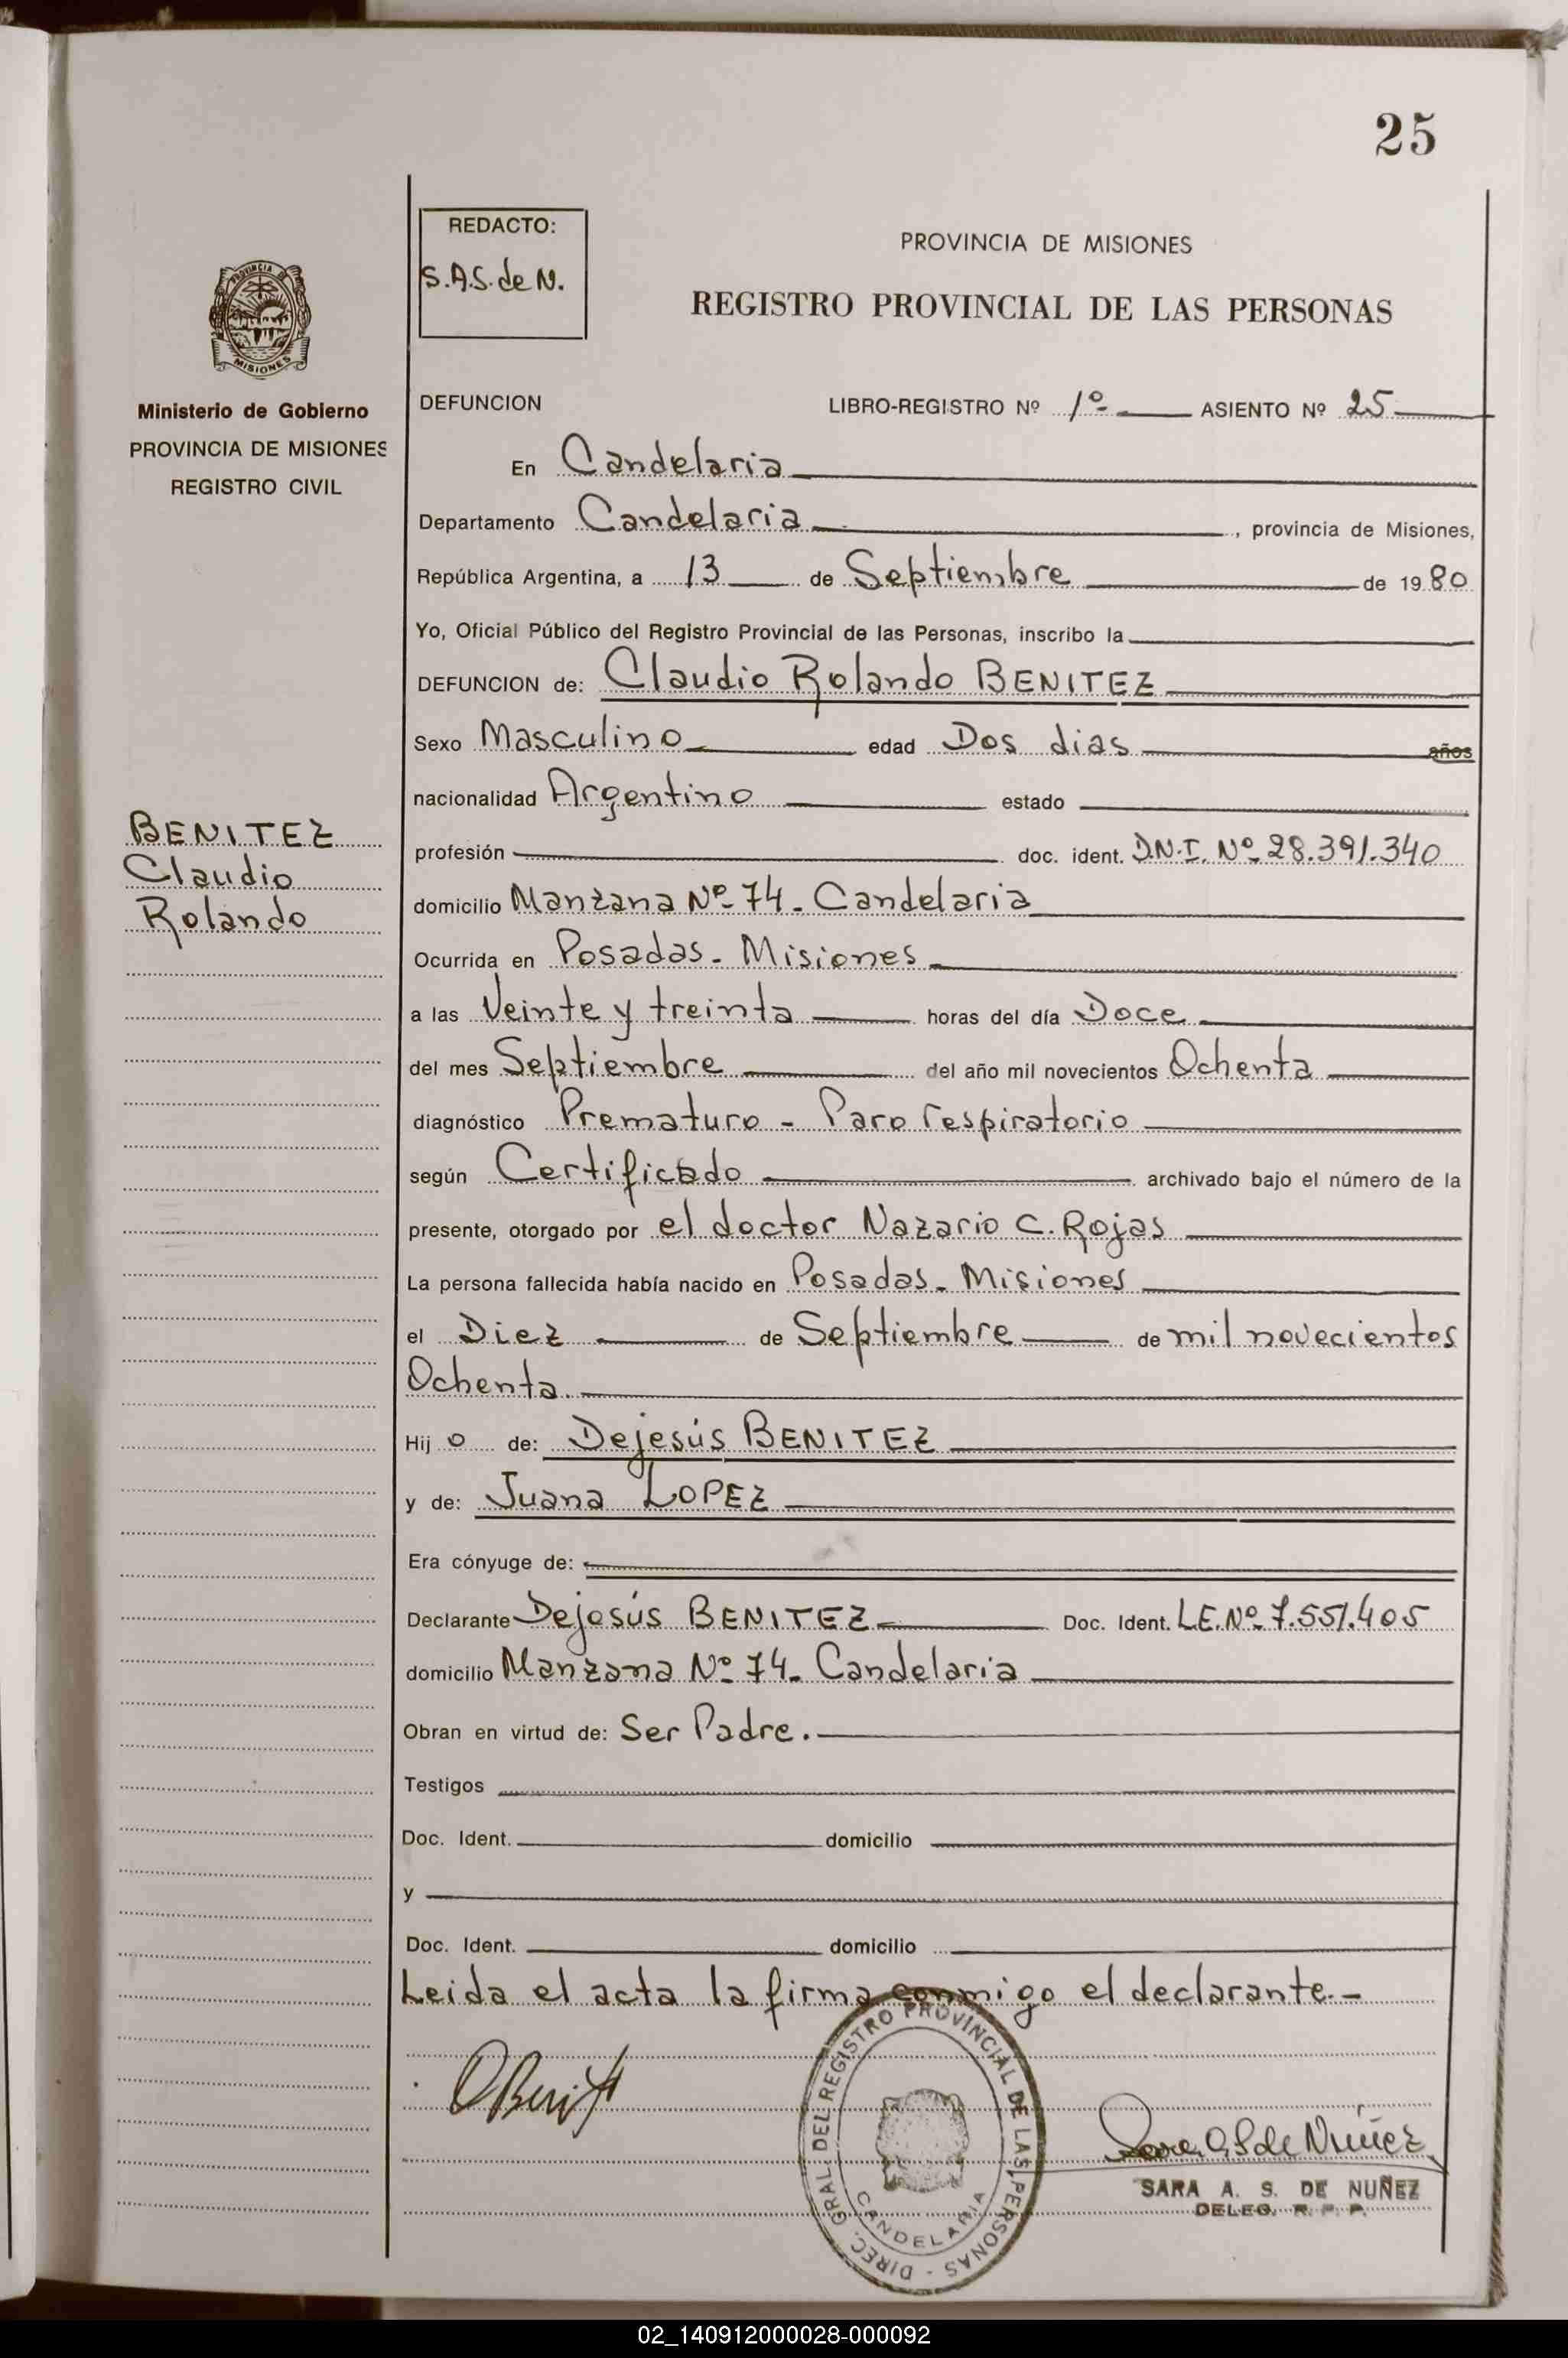 25
REDACTO:
S.A.S. de N.
PROVINCIA DE MISIONES
REGISTRO PROVINCIAL DE LAS PERSONAS
PROVINCIA DE
MISIONES
Ministerio de Gobierno
PROVINCIA DE MISIONES
REGISTRO CIVIL
BENITEZ
Claudio
Rolando
DEFUNCION LIBRO-REGISTRO Nº 1º ASIENTO Nº 25
En Candelaria
Departamento Candelaria, provincia de Misiones,
República Argentina, a 13 de Septiembre de 1980
Yo, Oficial Público del Registro Provincial de las Personas, inscribo la
DEFUNCION de: Claudio Rolando BENITEZ
Sexo Masculino edad Dos dias años
nacionalidad Argentino estado
profesión doc. ident. D.N.I. Nº 28.391.340
domicilio Manzana Nº 74. Candelaria
Ocurrida en Posadas. Misiones
a las Veinte y treinta horas del día Doce
del mes Septiembre del año mil novecientos Ochenta
diagnóstico Prematuro - Paro respiratorio
según Certificado archivado bajo el número de la
presente, otorgado por el doctor Nazario C. Rojas
La persona fallecida había nacido en Posadas. Misiones
el Diez de Septiembre de mil novecientos
Ochenta.
Hijo de: Dejesús BENITEZ
y de: Juana LOPEZ
Era cónyuge de:
Declarante Dejesús BENITEZ Doc. Ident. L.E. Nº 7.551.405
domicilio Manzana Nº 74. Candelaria
Obran en virtud de: Ser Padre.
Testigos
Doc. Ident. domicilio
y
Doc. Ident. domicilio
Leida el acta la firma conmigo el declarante.-
DIREC. GRAL. DEL REGISTRO PROVINCIAL DE LAS PERSONAS -
CANDELARIA
Sara A S de Nuñez
SARA A. S. DE NUÑEZ
DELEG. R. P. P.
02_140912000028-000092